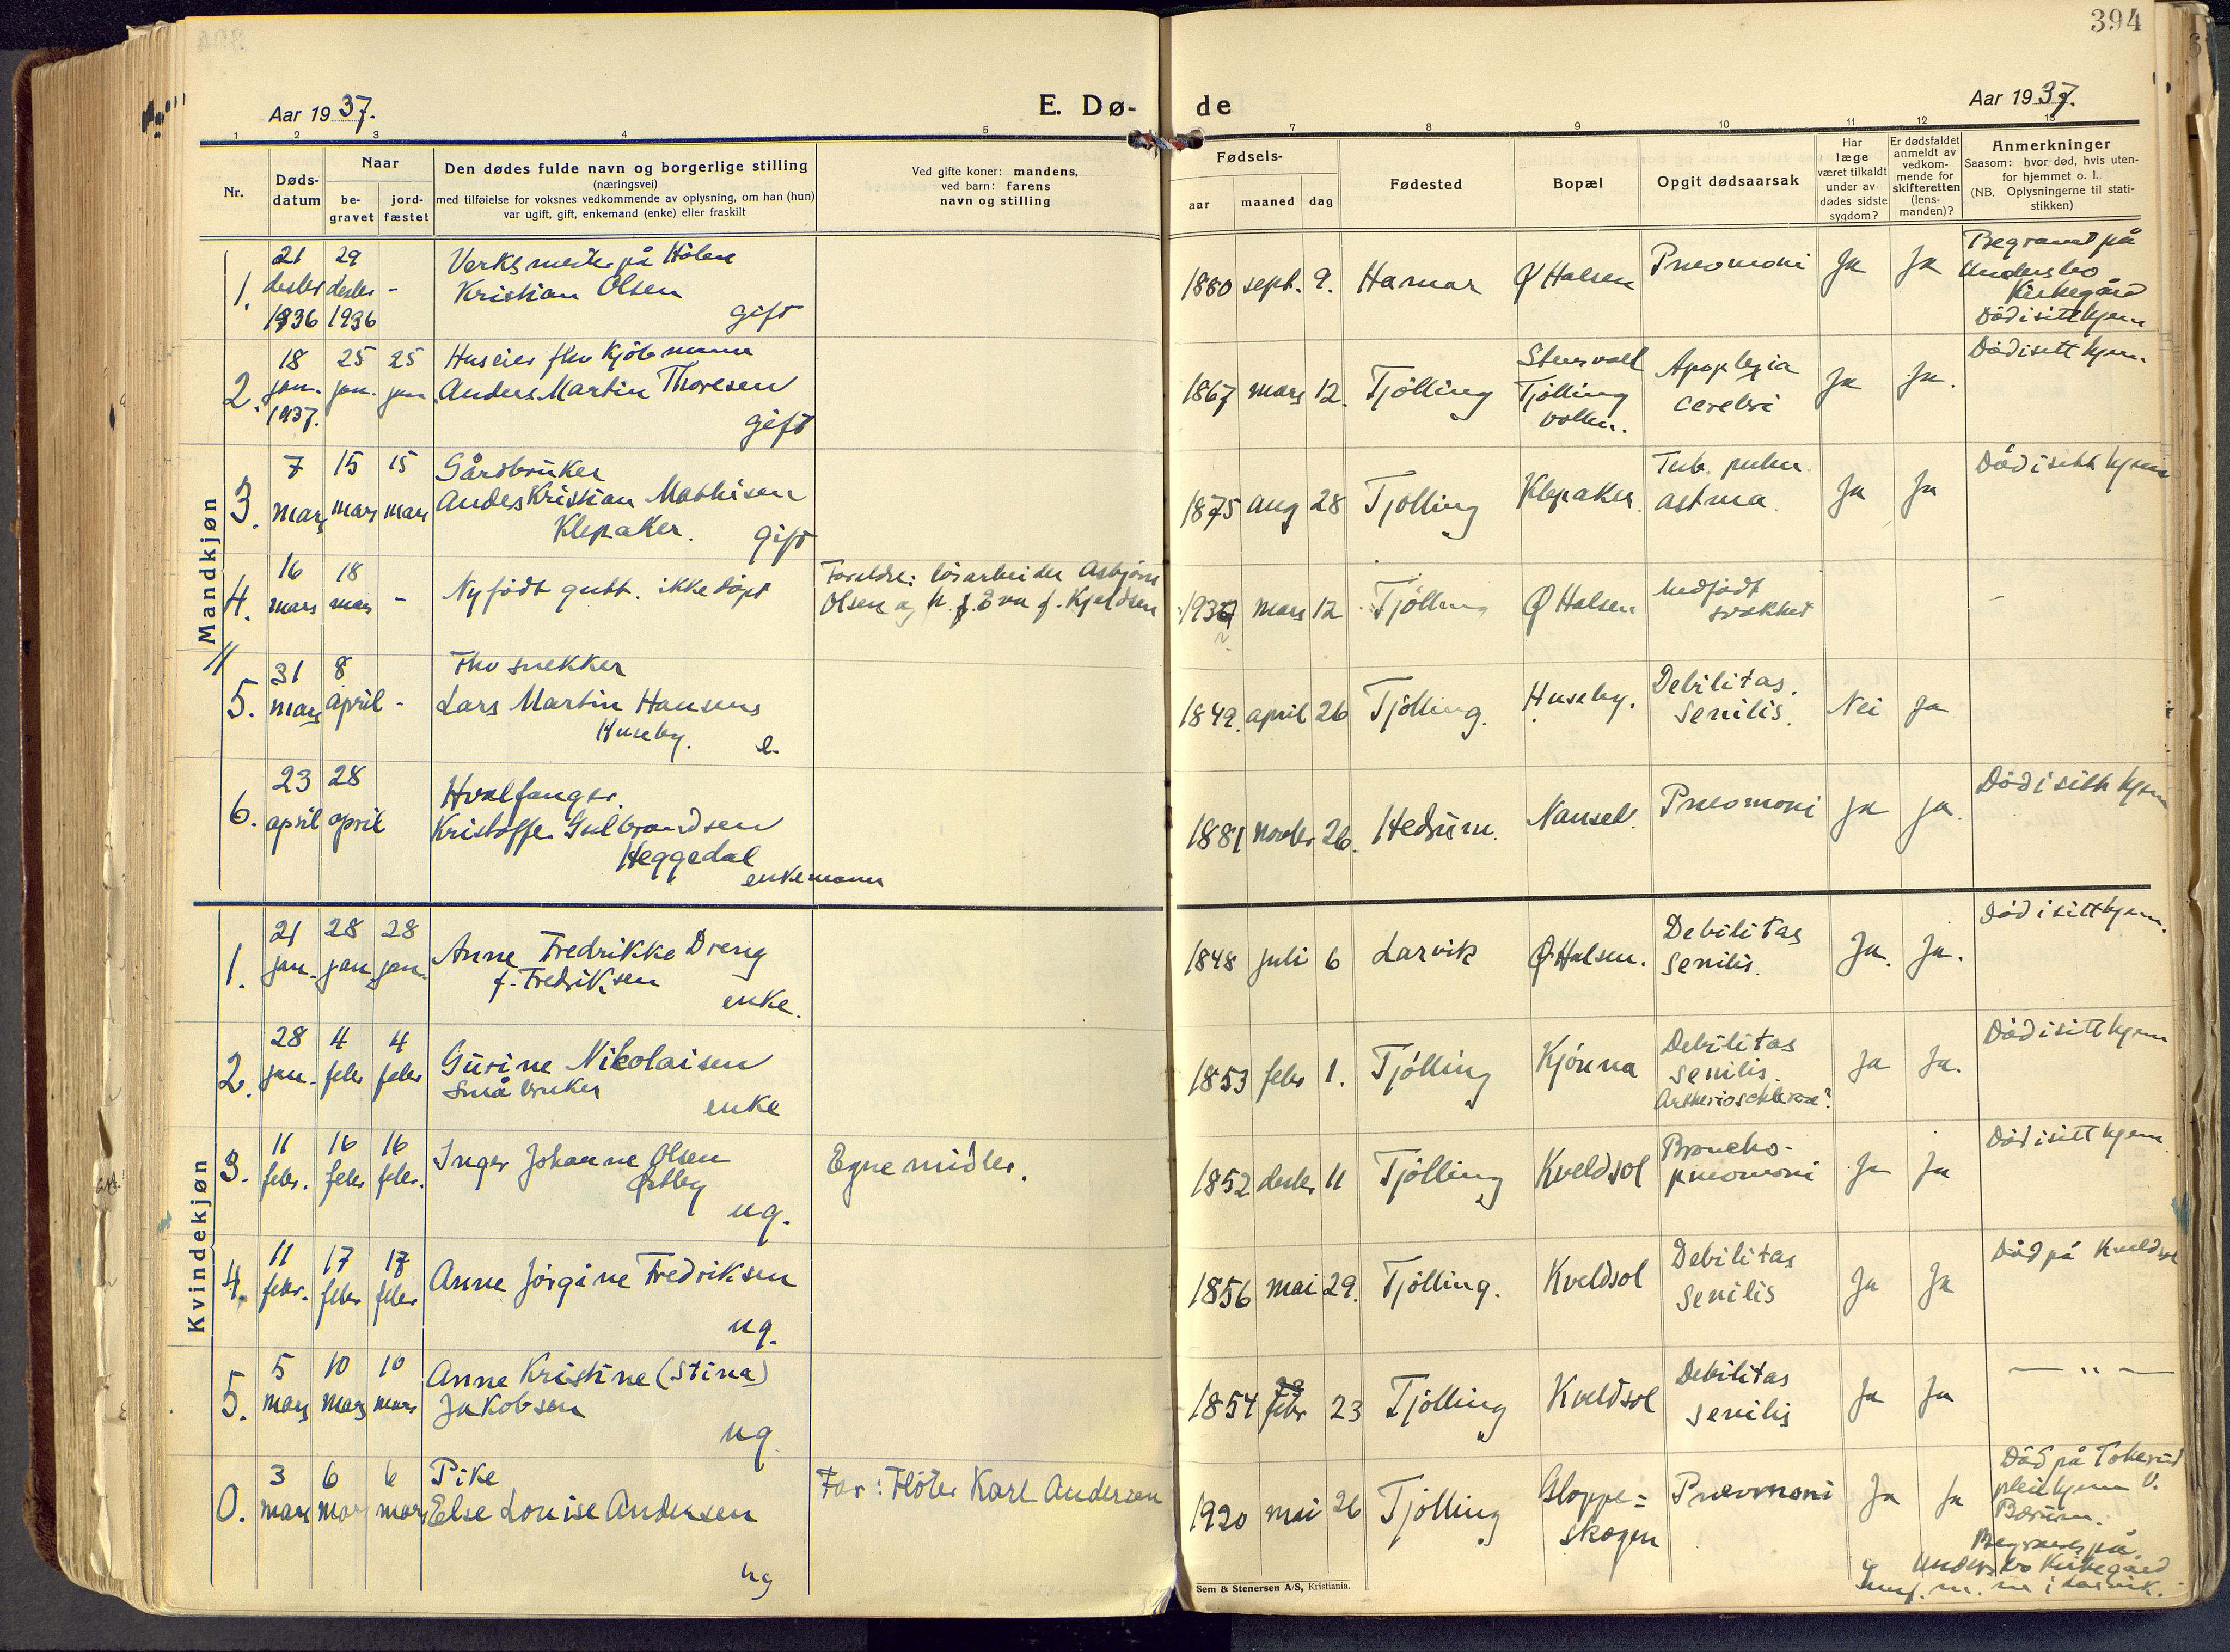 394
Aar 1937.
E. Dø-
de
Aar 1937.
1 2 3 4 5 7 8 9 10 11 12 13
Nr.
Døds-
datum
Naar
be-
gravet
jord-
fæstet
Den dødes fulde navn og borgerlige stilling
(næringsvei)
med tilføielse for voksnes vedkommende av oplysning, om han (hun)
var ugift, gift, enkemand (enke) eller fraskilt
Ved gifte koner: mandens,
ved barn: farens
navn og stilling
Fødsels-
aar maaned dag
Fødested
Bopæl
Opgit dødsaarsak
Har
læge
været tilkaldt
under av-
dødes sidste
sygdom?
Er dødsfaldet
anmeldt av
vedkom-
mende for
skifteretten
(lens-
manden)?
Anmerkninger
Saasom: hvor død, hvis uten-
for hjemmet o. l.
(NB. Oplysningerne til stati-
stikken)
Mandkjøn
1.
21
desbr
1936
29
desbr
1936
-
Verksmester på Hølen
Kristian Olsen
gift
1880 sept. 9. Hamar Ø Halsen Pneomoni Ja Ja
Begravet på
Undersbo
Kirkegård
Död i sitt hjem
2.
18
jan.
1937.
25
jan.
25
jan
Huseier fhv Kjöbmann
Anders Martin Thoresen
gift
1867 mars 12. Tjölling
Stensvoll
Tjölling
vollen.
Apoplexia
cerebri
Ja Ja.
Död i sitt hjem.
3.
7
mars
15
mars
15
mars
Gårdbruker
Anders Kristian Mathisen
Klepaker.
gift
1875 aug 28 Tjölling Klepaker.
Tub. pulm.
astma.
Ja Ja
Död i sitt hjem
4.
16
mars
18
mars
-
Nyfödt gutt. ikke döpt
Foreldre: lösarbeider Asbjörn
Olsen og h. f. Eva f. Kjeldsen
1937 mars 12 Tjölling Ø Halsen
Medfödt
svakhet
-
5.
31
mars
8
april
-
Fhv snekker
Lars Martin Hansens
Huseby.
e.
1849. april 26 Tjölling. Huseby.
Debilitas.
Senilis.
Nei Ja
6.
23
april
28
april
Hvalfanger.
Kristoffer Gulbrandsen
Heggedal
enkemann
1881 novbr 26. Hedrum. Nanset. Pneomoni Ja ja.
Död i sitt hjem
Kvindekjøn
1.
21
jan.
28
jan
28
jan.
Anne Fredrikke Dreng
f. Fredriksen
enke.
1848 juli 6 Larvik Ø Halsen.
Debilitas
Senilis.
Ja. Ja.
Död i sitt hjem.
2.
28
jan.
4
febr
4
febr
Gurine Nikolaisen
Småbruker
enke
1853 febr 1. Tjölling Kjönna
Debilitas
senilis.
Artherioschlerose?
Ja Ja.
Död i sitt hjem
3.
11
febr.
16
febr
16
febr.
Inger Johanne Olsen
Østby
ug.
Egne midler.
1852 desbr 11 Tjölling Kveldsol
Broncho-
pneomoni
Ja Ja
Död i sitt hjem
4.
11
febr.
17
febr
17
febr
Anne Jörgine Fredriksen
ug.
1856 mai 29. Tjölling. Kveldsol
Debilitas
Senilis
Ja Ja
Död på Kveldsol
5.
5
mars
10
mars
10
mars
Anne Kristine (Stina)
Jakobsen
ug.
1854 febr 23 Tjölling Kveldsol
Debilitas
senilis
Ja Ja
— " —
0.
3
mars
6
mars
6
mars
Pike
Else Louise Andersen
ug
Far: Flöter Karl Andersen
1920 mai 26 Tjölling
Gloppe=
skogen
Pneomoni Ja Ja
Död på Tokerud
pleiehjem V.
Bærum.
Begravet på
Undersbo Kirkegård
i Larvik.
Sem & Stenersen A/S, Kristiania.